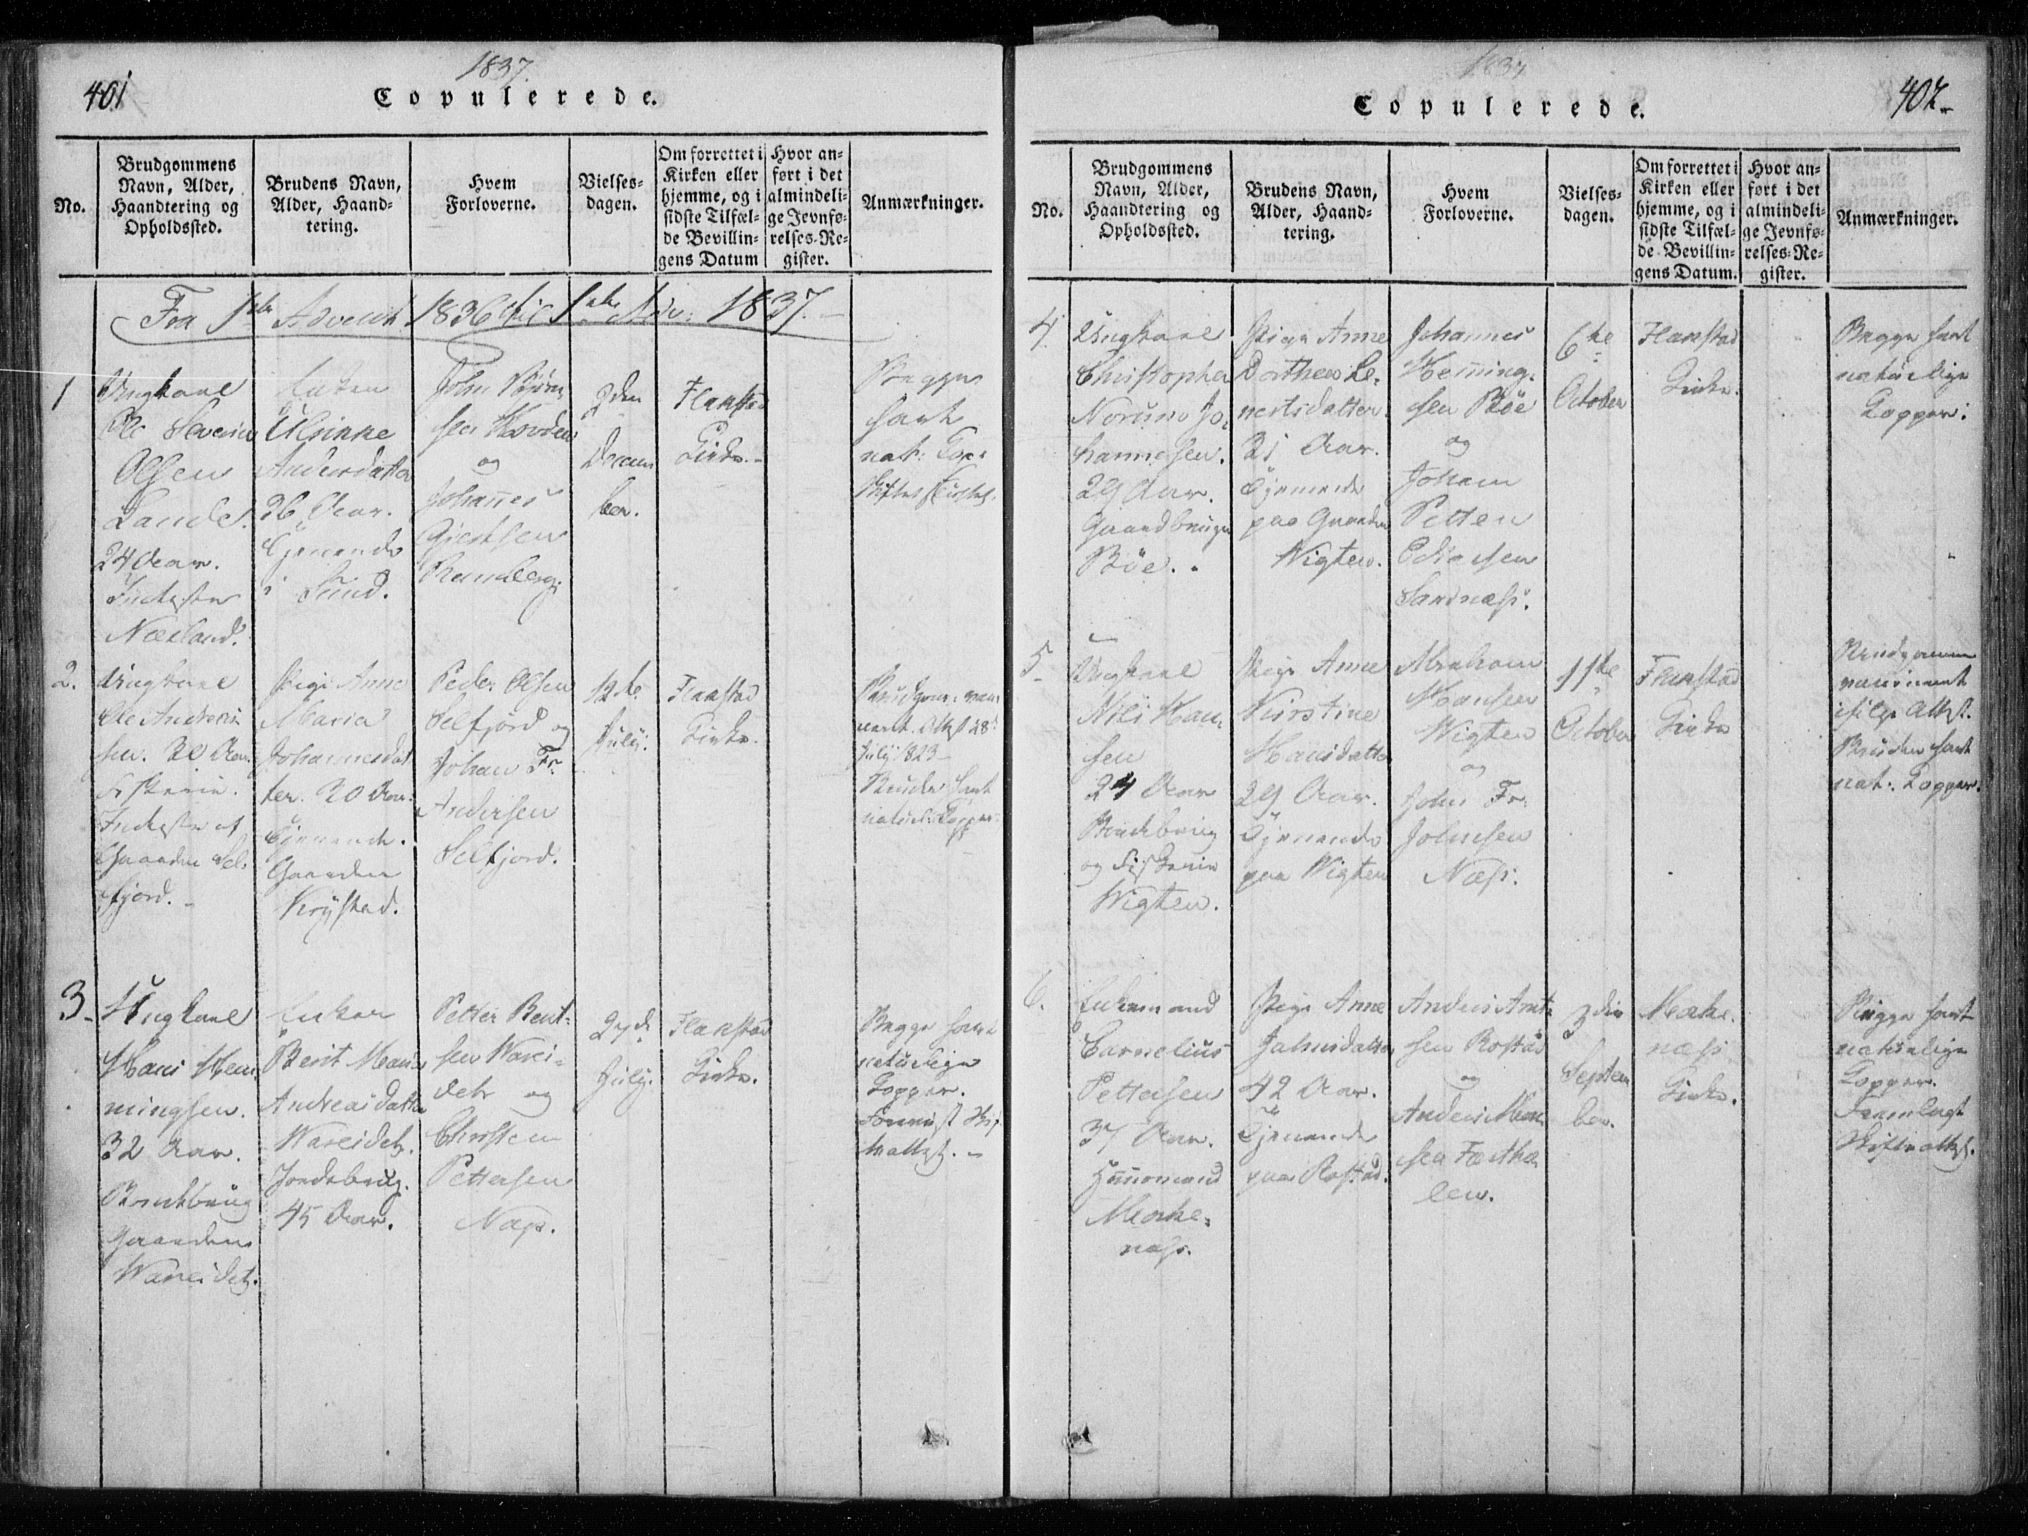 1837.
401
Copulerede.
No.
Brudgommens
Navn, Alder,
Haandtering og
Opholdssted.
Brudens Navn,
Alder, Haand-
tering.
Hvem
Forloverne.
Vielses-
dagen.
Om forrettet i
Kirken eller
hjemme, og i
sidste Tilfæl-
de Bevillin-
gens Datum
Hvor an-
ført i det
almindeli-
ge Jevnfø-
relses-Re-
gister.
Anmærkninger.
Fra 1ste Advent 1836 til 1ste Adv: 1837.
1
Ungkarl
Ole Severin
Olsen
Sandes.
24 Aar.
Inderster
Næsland.
Enken
Ulrikke
Andersdatter
26 Aar.
Tjenende
i Sund.
John Bjørn
sen Hovden
og
Johannes
Giertsen
Ramberg.
2den
Decem
ber.
Flakstad
Kirke.
Begge
havt
nat: Kop:
2.
Ungkarl
Ole Andreas
sen. 20 Aar.
Fiskerie.
Inderster af
Gaarden Sel-
fjord.
Pige Anne
Maria
Johannesdat
ter. 20 Aar.
Tjenende.
Gaarden
Krystad.
Peder Olsen
Selfjord og
Johan Fr.
Andersen
Selfjord.
12te
July.
Flakstad
Kirke.
Brudgom: vac-
cineret. Attest 28de
July 1823
Bruden havt
naturl: Kopper
3.
Ungkarl
Hans Hen-
ningsen.
32 Aar.
Brug
Gaarden
Wareidet.
Enken
Berit Maria
Andreasdatter
Wareidet.
Jordebrug.
45 Aar.
Petter Bent-
sen Warei-
det og
Christen
Pettersen
Nap.
27de
July.
Flakstad
Kirke.
Begge havt
naturlige
Kopper.
1837
402
Copulerede.
No.
Brudgommens
Navn, Alder,
Haandtering og
Opholdssted.
Brudens Navn,
Alder, Haand-
tering.
Hvem
Forloverne.
Vielses-
dagen.
Om forrettet i
Kirken eller
hjemme, og i
sidste Tilfæl-
de Bevillin-
gens Datum.
Hvor an-
ført i det
almindeli-
ge Jevnfø-
relses-Re-
gister.
Anmærkninger.
4.
Ungkarl
Christopher
Norum Jo-
hannesen.
29 Aar.
Gaardbruger
Bøe.
Pige Anne
Dorthea Le-
nertsdatter.
21 Aar.
Tjenende
paa Gaarden
Wigten.
Johannes
Henning-
sen Bøe
og
Johan
Petter
Sandnæs.
6te
October
Flakstad
Kirke.
Begge havt
naturlige
Kopper.
5.
Ungkarl
Nils Han-
sen
24 Aar
og Fiskerie
Wigten.
Pige Anne
Kirstine
Hansdatter
29 Aar.
Tjenende
paa Wigten
Abraham
Hansen
Wigten
og
John Fr.
Johnsen
Næss.
11te
October
Flakstad
Kirke
Brudgommen
vaccineret
ifølge Attest.
Bruden havt
nat: Kopper.
6.
Enkemand
Cornelius
Pettersen
37 Aar.
Huusmand
Mærke-
næss.
Pige Anne
Jahnsdatter
42 Aar.
Tjenende
paa Rostad.
Anders Arnt-
sen Rostad
og
Anders
sen
len.
3die
Septem
ber.
Mærke-
næss
Kirke.
Begge havt
naturlige
Kopper.
Fremlagt
Skifteattest.